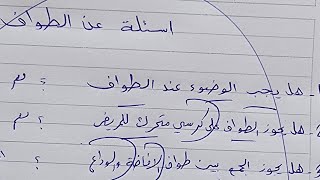 اسئلة عن الطواف
1- هل يجب الوضوء عند الطواف ؟
2- هل يجوز الطواف على كرسي متحرك للمريض ؟
3- هل يجوز الجمع بين طواف الافاضة والوداع ؟